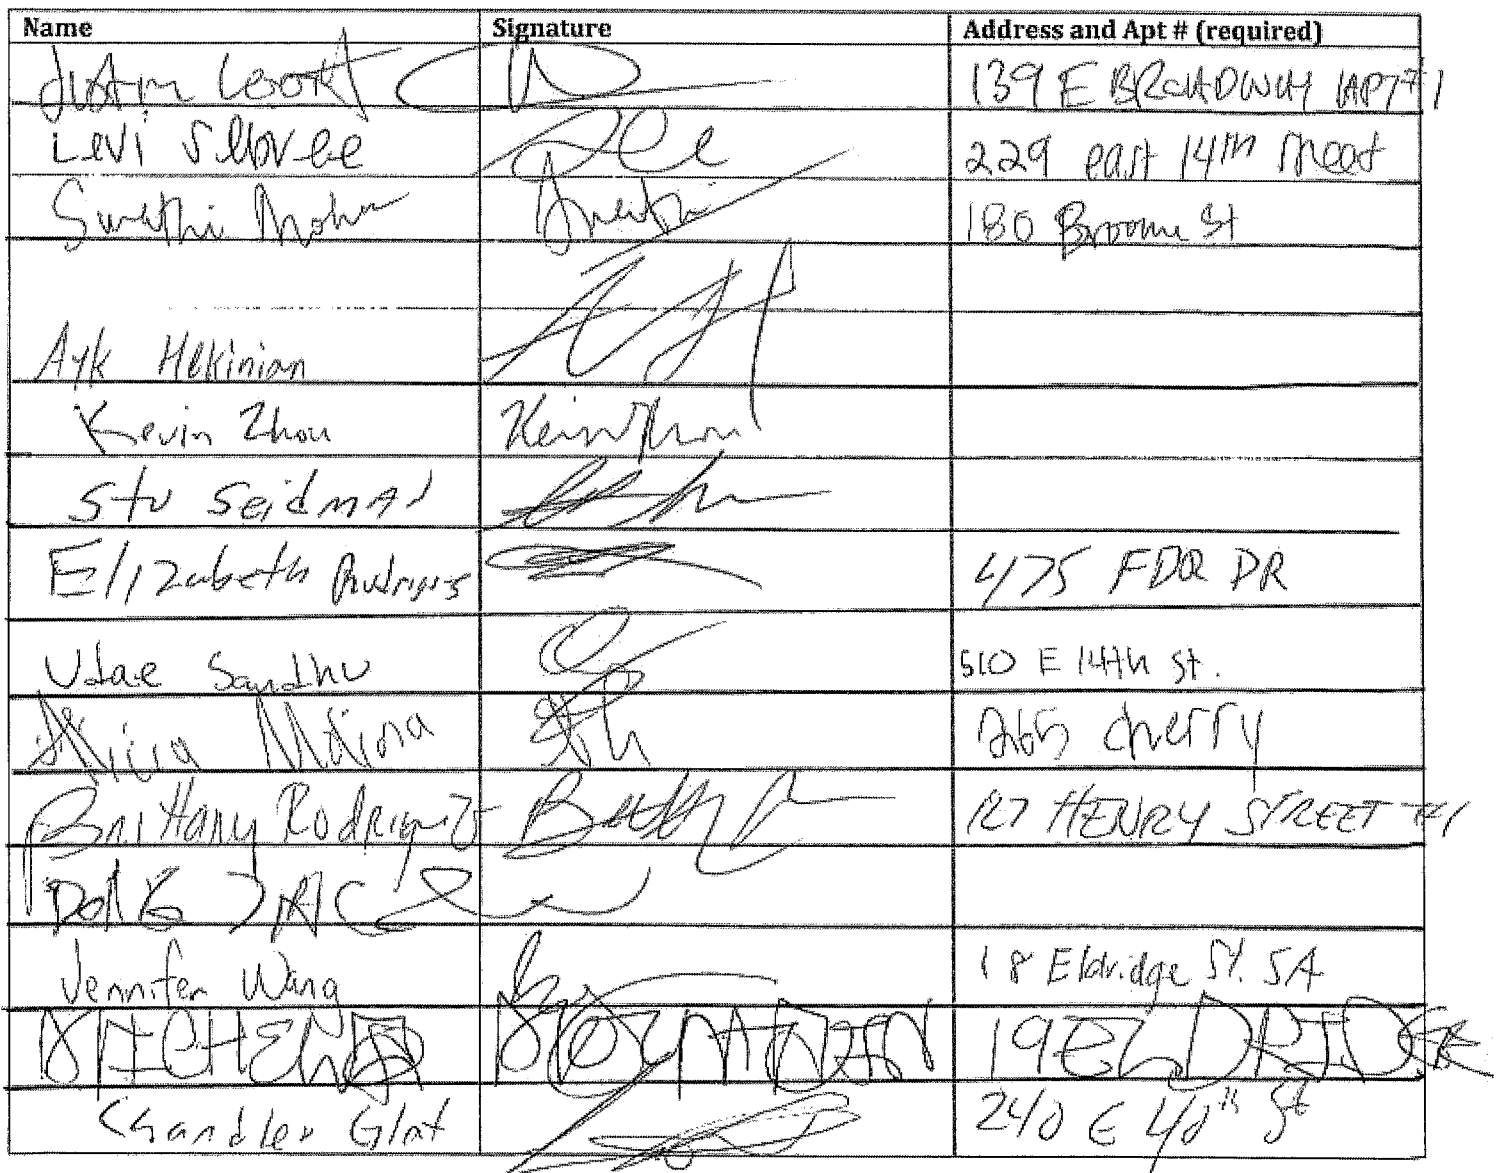 Name Signature Address and Apt # (required)
Justin 139 E BROADWAY APT #1
Levi 229 east 14th Street
Swathi Mohan Swathi 180 Broome St
Ayk Hekinian
Kevin Zhou Kevin Zhou
Stu Seidman
Elizabeth Rodrigues 475 FDR DR
Udae Sandhu 510 E 14th St.
Alicia Molina 265 cherry
Brittany Rodriguez 127 HENRY STREET #1
DONG
Jennifer Wang 18 Eldridge St. 5A
19 ELDRIDGE
Chandler Glat 240 E 40th St